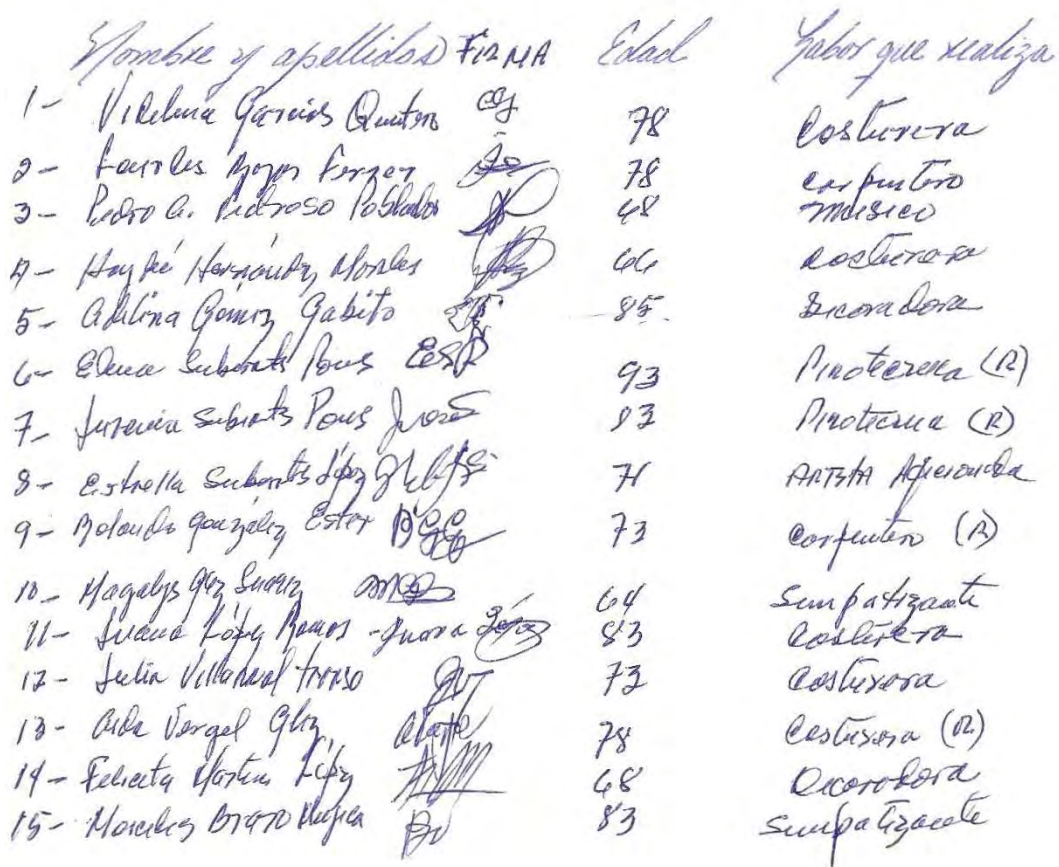 Nombre y apellidos FIRMA Edad Labor que realiza
1- Videlina García Quintero 78 Costurera
2- Rojas Ferrer 78 Carpintero
3- Pedro A. Pedroso 68 músico
4- Haydé Hernández Morales 66 Costurera
5- Adelina Gómez Gabito 85 Decoradora
6- Elena Subirats Pons 93 Pirotecnia (R)
7- Subirats Pons 83 Pirotecnia (R)
8- Estrella Subirats López 71 Artista Aficionada
9- Rolando González Ester 73 Carpintero (R)
10- Magalys Glez Suárez 64 Simpatizante
11- Juana López Ramos - Juana López 83 Costurera
12- Julia Villarreal 73 Costurera
13- Aida Vergel Glez 78 Costurera (R)
14- Felicita Martínez López 68 Decoradora
15- Bravo 83 Simpatizante